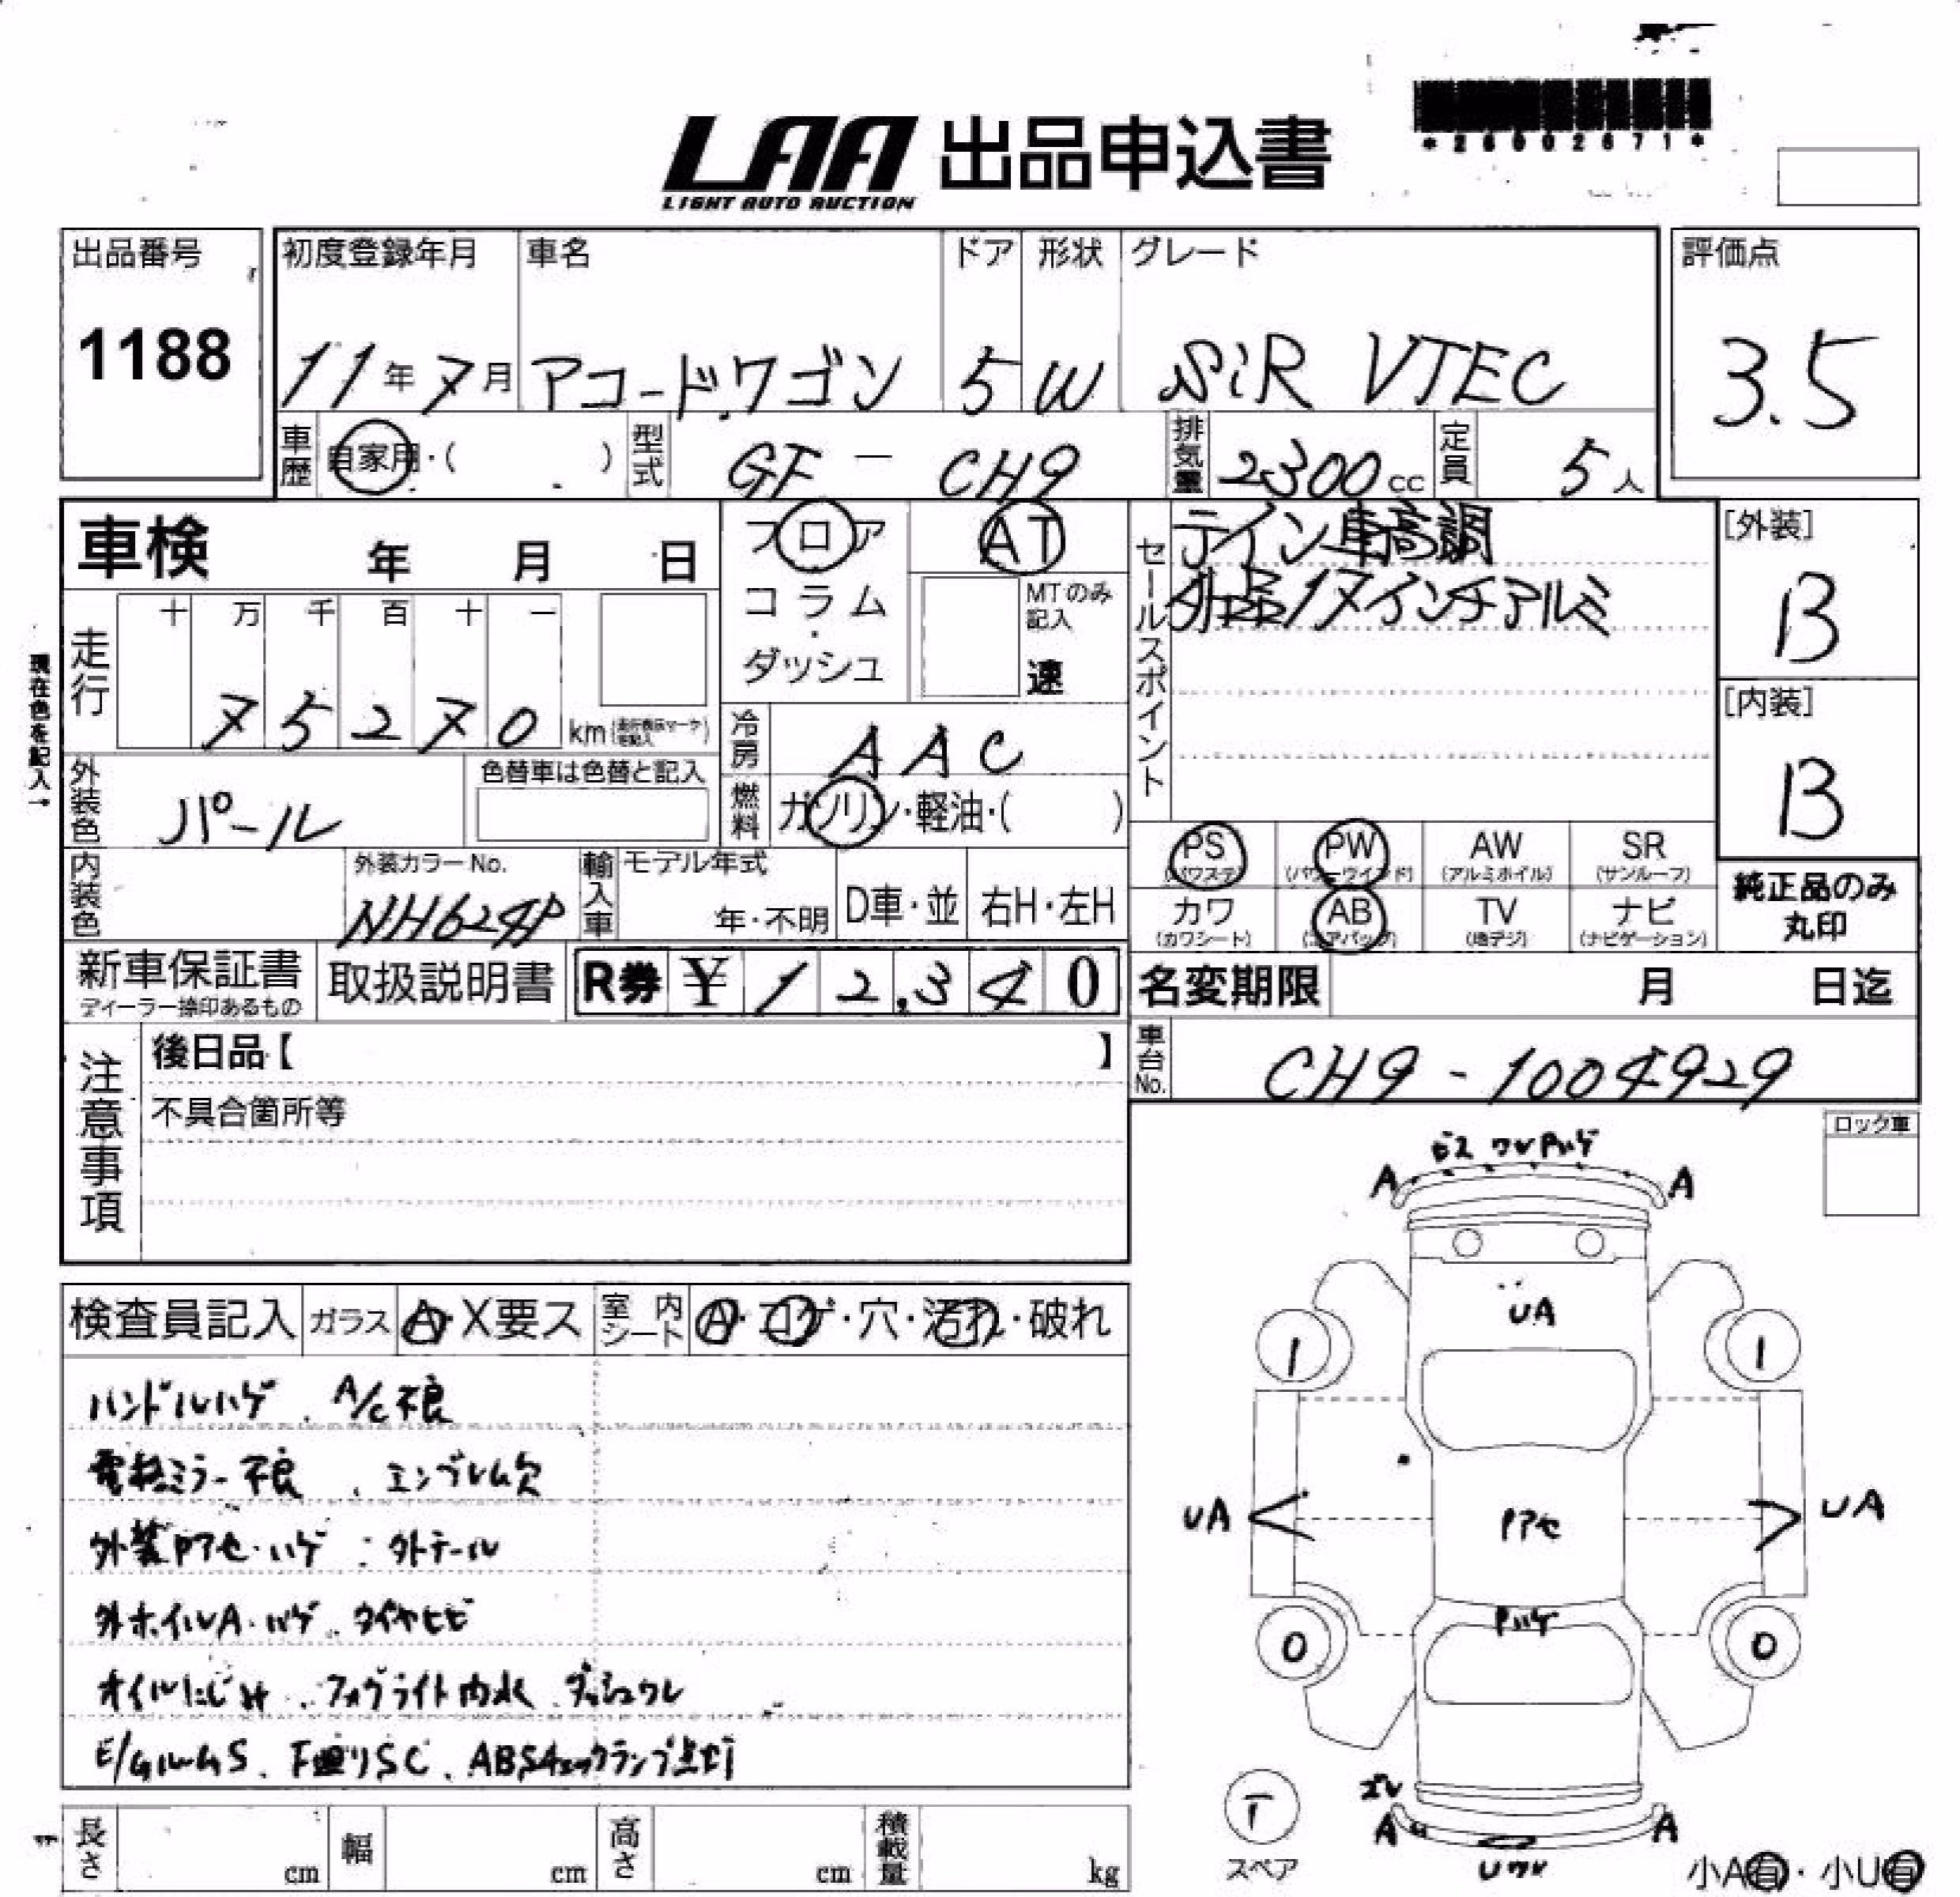 *26002671*
LAA 出品申込書
LIGHT AUTO AUCTION
出品番号 初度登録年月 車名 ドア 形状 グレード 評価点
1188 11年7月 アコードワゴン 5 W SiR VTEC 3.5
車歴 自家用・( ) 型式 GF - CH9 排気量 2300cc 定員 5人
車検 年 月 日 フロア AT セールスポイント テイン車高調 [外装]
コラム・ダッシュ MTのみ記入 速 外品17インチアルミ B
走行 十 万 千 百 十 一
75270 km
現在色を記入→
冷房 AAC [内装]
外装色 パール 色替車は色替と記入 燃料 ガソリン・軽油・( ) B
PS (パワステ) PW (パワーウインド) AW (アルミホイル) SR (サンルーフ)
内装色 外装カラーNo. NH624P 輸入車 モデル年式 年・不明 D車・並 右H・左H
カワ (カワシート) AB (エアバッグ) TV (地デジ) ナビ (ナビゲーション) 純正品のみ丸印
新車保証書 ディーラー捺印あるもの 取扱説明書 R券 ¥12,340 名変期限 月 日迄
注意事項 後日品【 】 車台No. CH9-1004929
不具合箇所等
ロック車
ビス ワレPハゲ
A A
検査員記入 ガラス A・X要ス 室内シート A・コゲ・穴・汚れ・破れ
UA
1 1
ハンドルハゲ、A/C不良
電格ミラー不良、エンブレム欠
UA UA
外装Pアセ・ハゲ:外テール
Pアセ
外ホイルA・ハゲ、タイヤヒビ
Pハゲ
0 0
オイルにじみ、フォグライト内水、ダッシュワレ
E/GルームS、下廻りSC、ABSチェックランプ点灯
T
スペア
ズレ
A A
Uワレ
長さ cm 幅 cm 高さ cm 積載量 kg
小A有・小U有